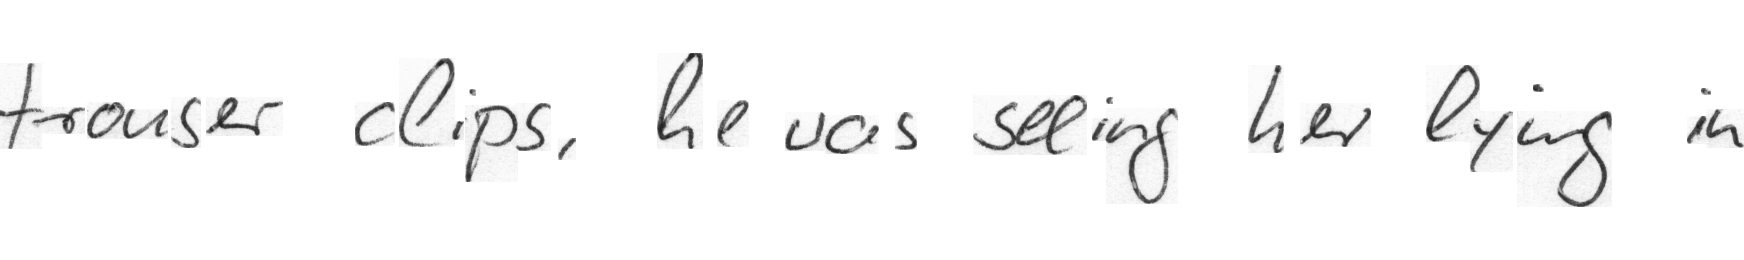 trouser clips, he was seeing her lying in